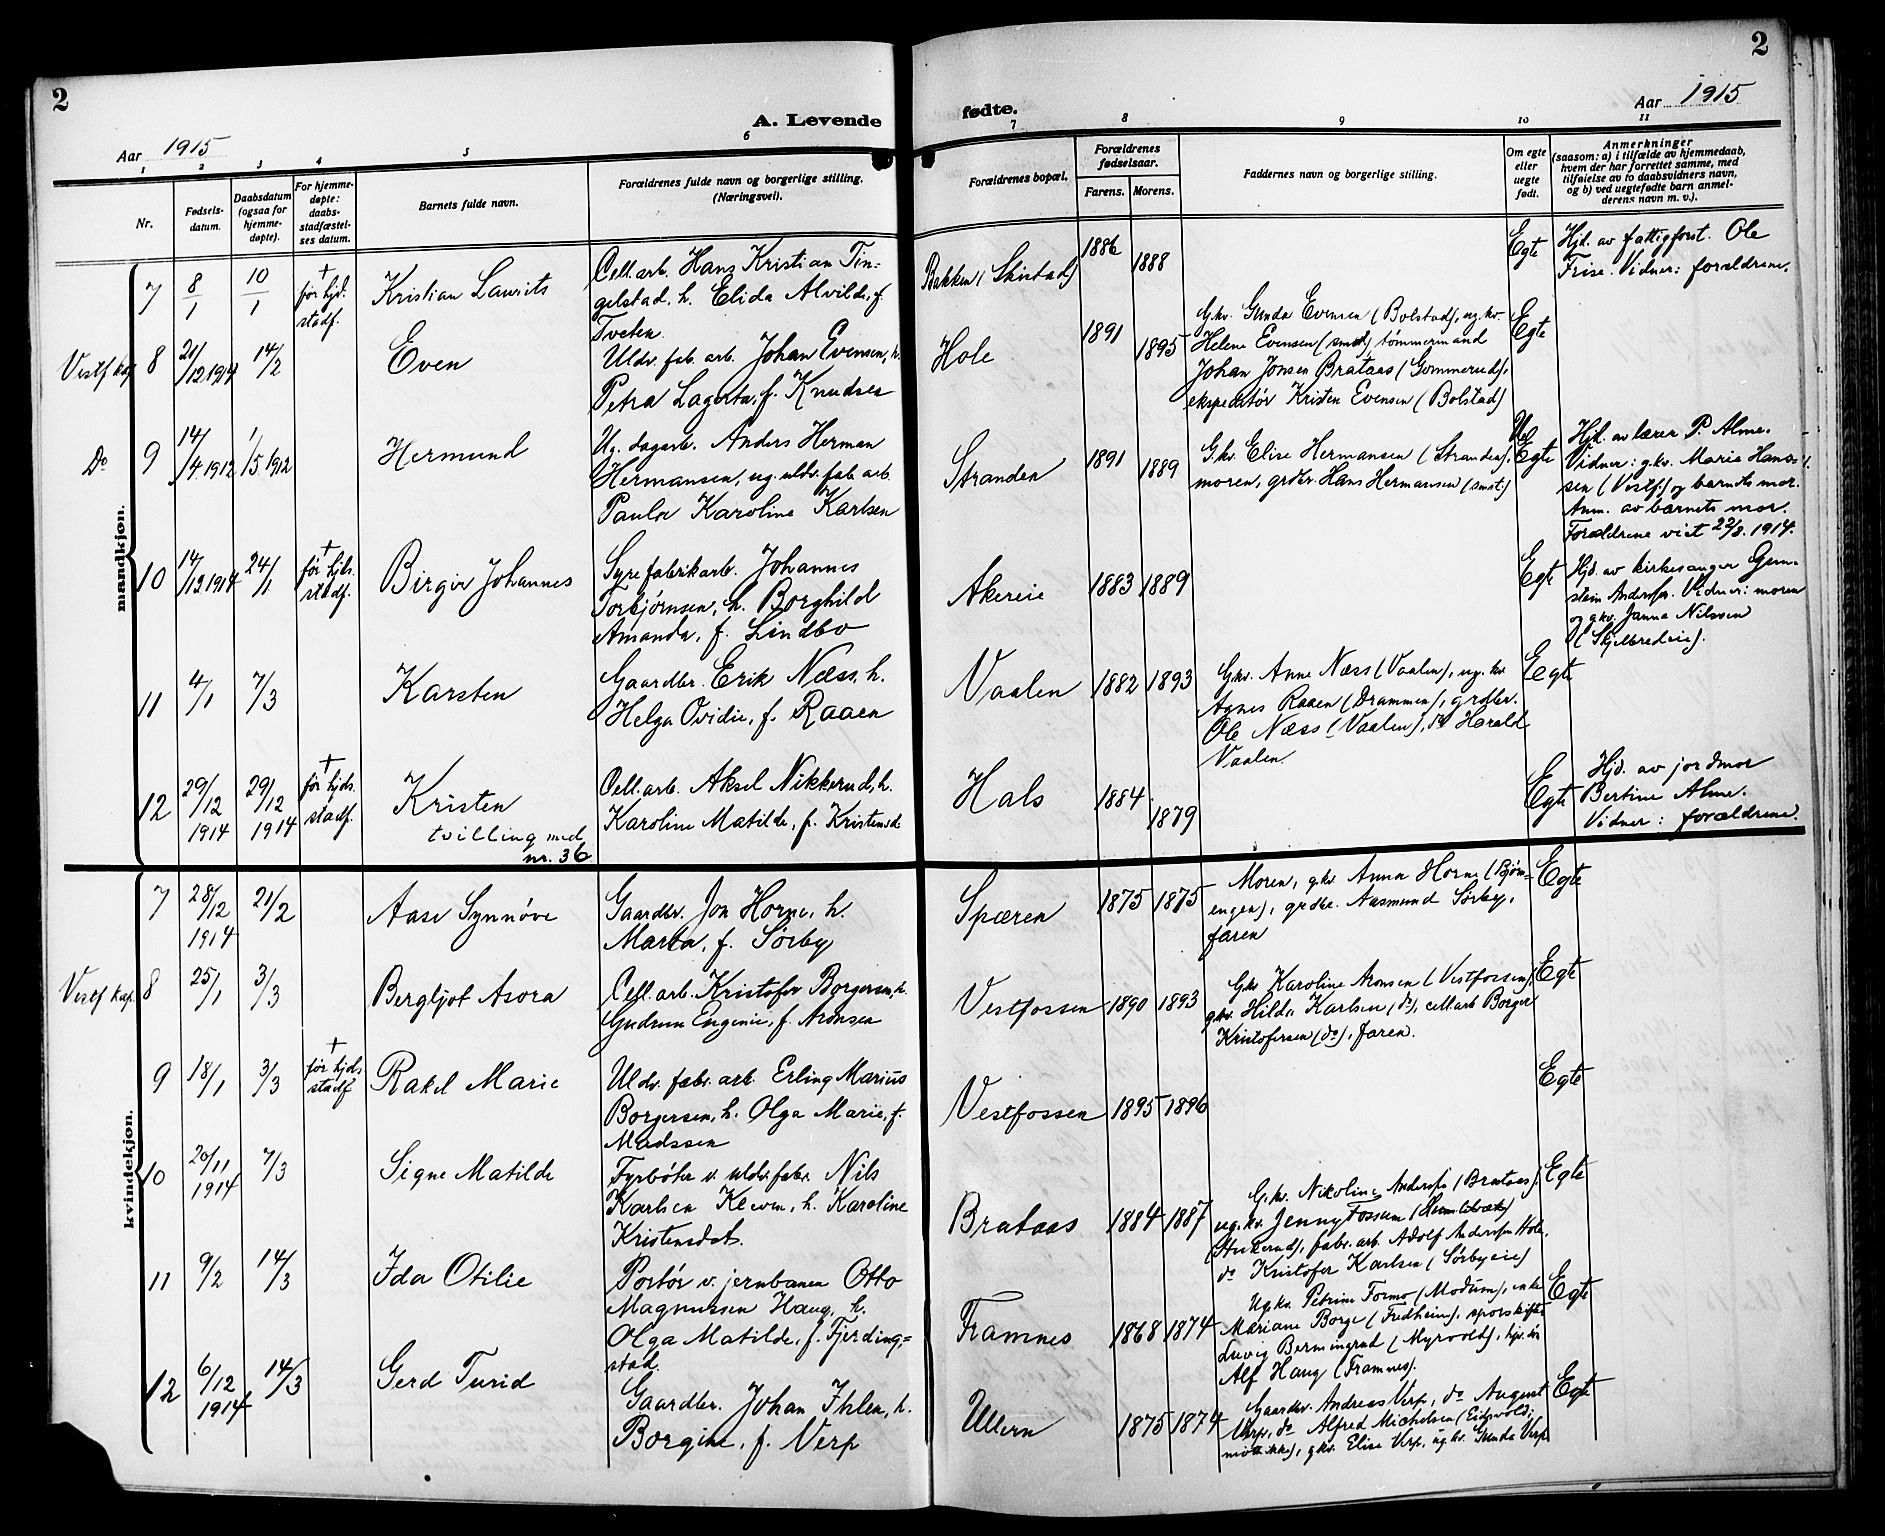 2
A. Levende
fødte.
2
Aar 1915
Aar 1915
1
2
3
4
5
6
7
8
9
10
11
Nr.
Fødsels-
datum.
Daabsdatum
(ogsaa for
hjemme-
døpte).
For hjemme-
døpte:
daabs-
stadfæstel-
ses datum.
Barnets fulde navn.
Forældrenes fulde navn og borgerlige stilling.
(Næringsvei).
Forældrenes bopæl.
Forældrenes
fødselsaar.
Farens.
Morens.
Faddernes navn og borgerlige stilling.
Om egte
eller
uegte
født.
Anmerkninger
(saasom: a) i tilfælde av hjemmedaab,
hvem der har forrettet samme, med
tilføielse av to daabsvidners navn,
og b) ved uegtefødte barn anmel-
derens navn m. v.).
mandkjøn.
7
8/1
10/1
+
før hjd.
stadf.
Kristian Laurits
Cell. arb. Hans Kristian Tin-
gelstad, h. Elida Alvilde, f.
Tveten
Bakken (Skistad)
1886
1888
Egte
Hjd. av fattigforst. Ole
Frise. Vidner: forældrene.
Vestf kap
8
21/12 1914
14/2
Even
Uldv. fab. arb. Johan Evensen, h.
Petra Lagerta, f. Knudsen
Hole
1891
1895
Gkv. Gunda Evensen (Bolstad), ug. kv.
Helene Evensen (smst) tømmermand
Johan Jonsen Brataas (Gommerud),
ekspeditør Kristen Evensen (Bolstad)
Egte
Do
9
14/4 1912
1/5 1912
Hermund
Ug. dagarb. Anders Herman
Hermansen, ug. uldv. fab. arb.
Paula Karoline Karlsen
Stranden
1891
1889
Gkv. Elise Hermansen (Stranden),
moren, grdbr. Hans Hermansen (smst.)
Uegte
Hjd. av lærer P. Alme.
Vidner: gkv. Marie Hans-
sen (Vestf.) og barnets mor.
Anm. av barnets mor.
Forældrene viet 22/3. 1914.
10
14/12 1914
24/1
+
før hjds.
stadf.
Birger Johannes
Syrefabrikarb. Johannes
Torbjørnsen, h. Borghild
Amanda, f. Lindbo
Akereie
1883
1889
Egte
Hjd. av kirkesanger Gun-
stein Anderson. Vidner: moren
og gkv. Janna Nilssen
(Skjelbredeie).
11
4/1
7/3
Karsten
Gaardbr. Erik Næss, h.
Helga Ovidie, f. Raaen
Vaalen
1882
1893
Gkv. Anne Næss (Vaalen), ug. kv.
Agnes Raaen (Drammen), grdbr.
Ole Næss (Vaalen), do Harald
Vaalen.
Egte
12
29/12
1914
29/12
1914
+
før hjds.
stadf.
Kristen
tvilling med
nr. 36
Cell. arb. Aksel Nikkerud, h.
Karoline Matilde, f. Kristensd.
Hals
1884
1879
Egte
Hjd. av jordmor
Bertine Alme.
Vidner: forældrene.
kvindekjøn.
7
28/12
1914
21/2
Aase Synnøve
Gaardbr. Jon Horne, h.
Marta, f. Sørby
Spæren
1875
1875
Moren, gkv. Anna Horne (Bjørn-
engen), grdbr. Aasmund Sørby,
faren
Egte
Vestf kap.
8
25/1
3/3
Bergljot Asora
Cell. arb. Kristofer Borgersen, h.
Gudrun Eugenie, f. Aronsen
Vestfossen
1890
1893
Gkv Karoline Aronsen (Vestfossen),
gkv. Hilda Karlsen (do), cell. arb Borger
Kristofersen (do), faren.
Egte
9
18/1
3/3
+
før hjds
stadf
Rakel Marie
Uldv. fabr. arb. Erling Marius
Borgersen, h. Olga Marie, f.
Madssen
Vestfossen
1895
1896
Egte
10
20/11
1914
7/3
Signe Matilde
Fyrbøter v. uldv. fabr. Nils
Karlsen Kleven, h. Karoline
Kristensdat.
Brataas
1884
1887
Gkv. Nikoline Andersen (Brataas),
ug. kv. Jenny Fossum
fabr. arb. Adolf Andersen Hole,
do Kristofer Karlsen (Sørbyeie)
Egte
11
9/2
14/3
Ida Otilie
Portør v. jernbanen Otto
Magnussen Haug, h.
Olga Matilde, f. Fjerding-
stad.
Framnes
1868
1874
Ug. kv. Petrine Formo (Modum), enke
Mariane Borge (Fredheim), sporskifter
Luvig Bermingrud (Myrvold),
Alf Haug (Framnes).
Egte
12
6/12
1914
14/3
Gerd Turid
Gaardbr. Johan Ihlen, h.
Borgine, f. Verp
Ullern
1875
1874
Gaardbr. Andreas Verp, do August
Verp, do Alfred Michelsen (Eidsvold;
møtte ikke), gkv. Elise Verp, ug. kv. Gunda Verp
Egte